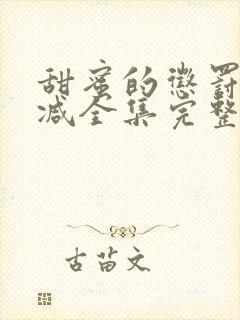 甜蜜的惩罚
减全集完整
古苗文